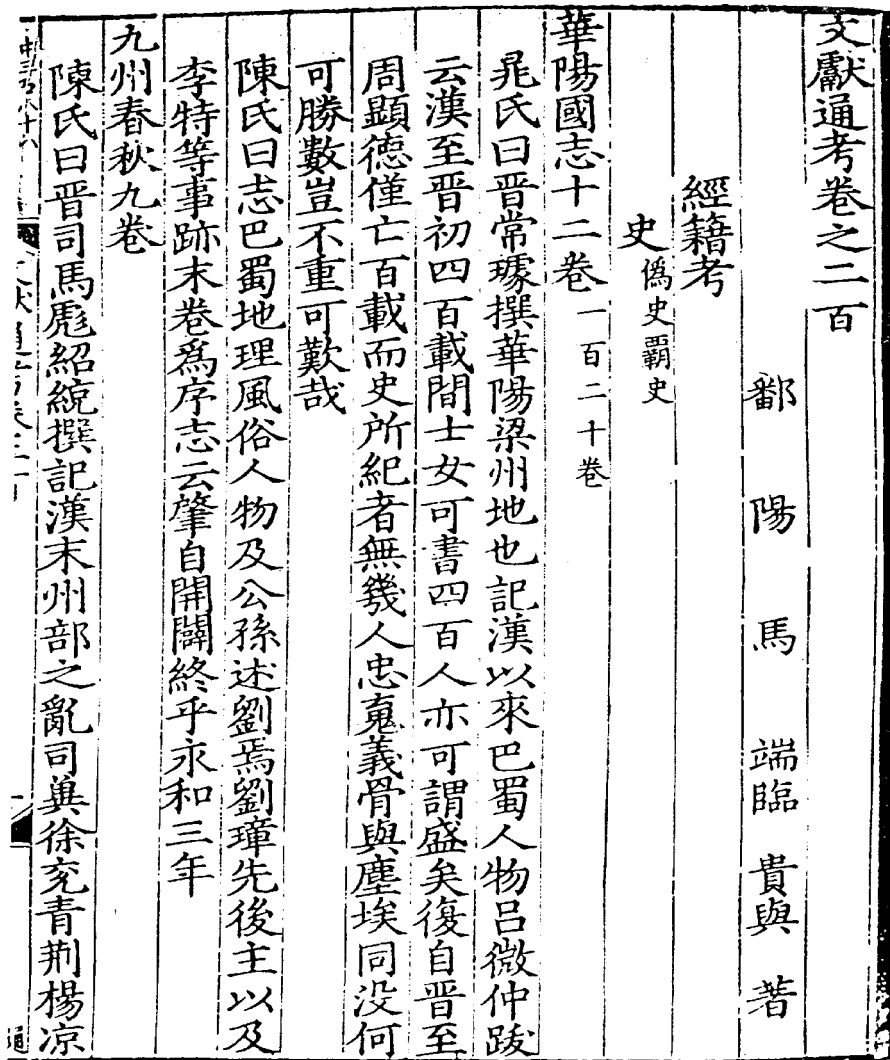 文獻通考卷之二百
鄱陽馬端臨貴與著
經籍考
史 僞史霸史
華陽國志十二卷 一百二十卷
晁氏曰晉常璩撰華陽梁州地也記漢以來巴蜀人物呂微仲跋
云漢至晉初四百載間士女可書四百人亦可謂盛矣復自晉至
周顯德僅七百載而史所紀者無幾人忠䰟義骨與塵埃同没何
可勝數豈不重可歎哉
陳氏曰志巴蜀地理風俗人物及公孫述劉焉劉璋先後主以及
李特等事跡末卷爲序志云肇自開闢終乎永和三年
九州春秋九卷
陳氏曰晉司馬彪紹統撰記漢末州部之亂司兾徐兖青荆楊凉